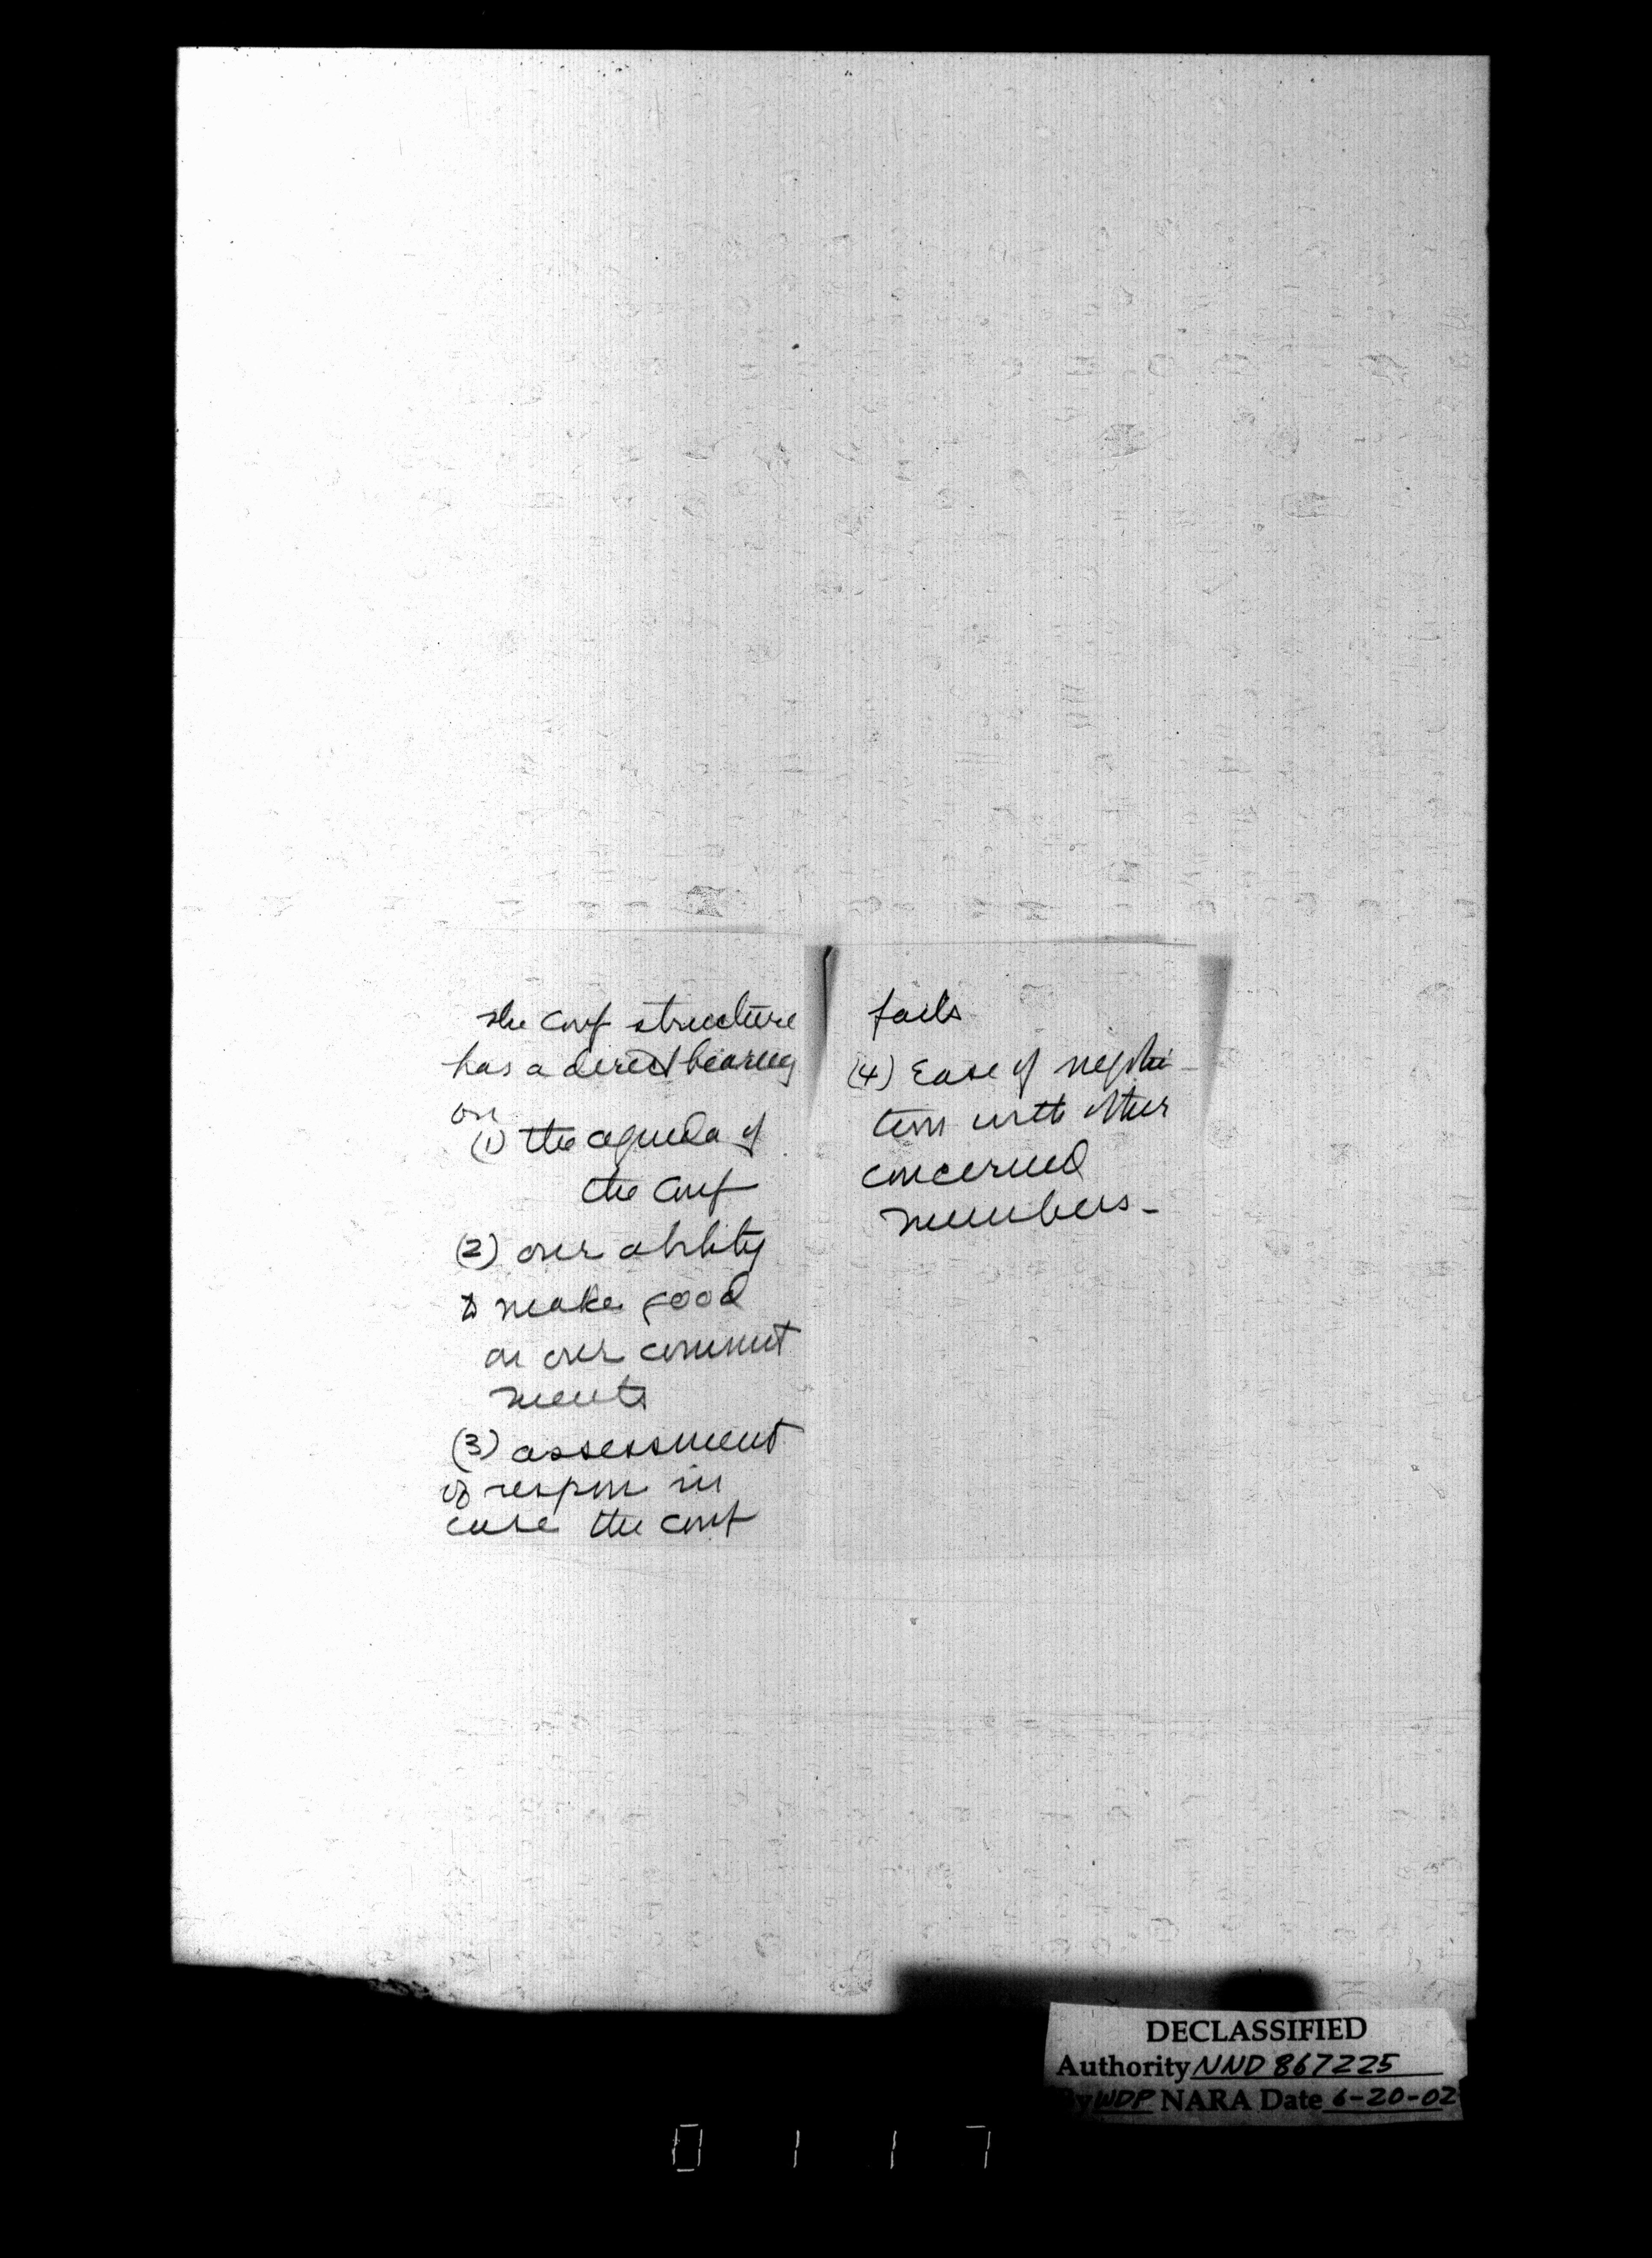 The conf structure
has a direct bearing
on
(1) the agenda of
the conf
(2) our ability
to make good
on our commit
ments
(3) assessment
of respon in
case the conf
fails
(4) Ease of negotia-
tion with other
concerned
members-
DECLASSIFIED
Authority NND 867225
By WDP NARA Date 6-20-02
0 1 1 7